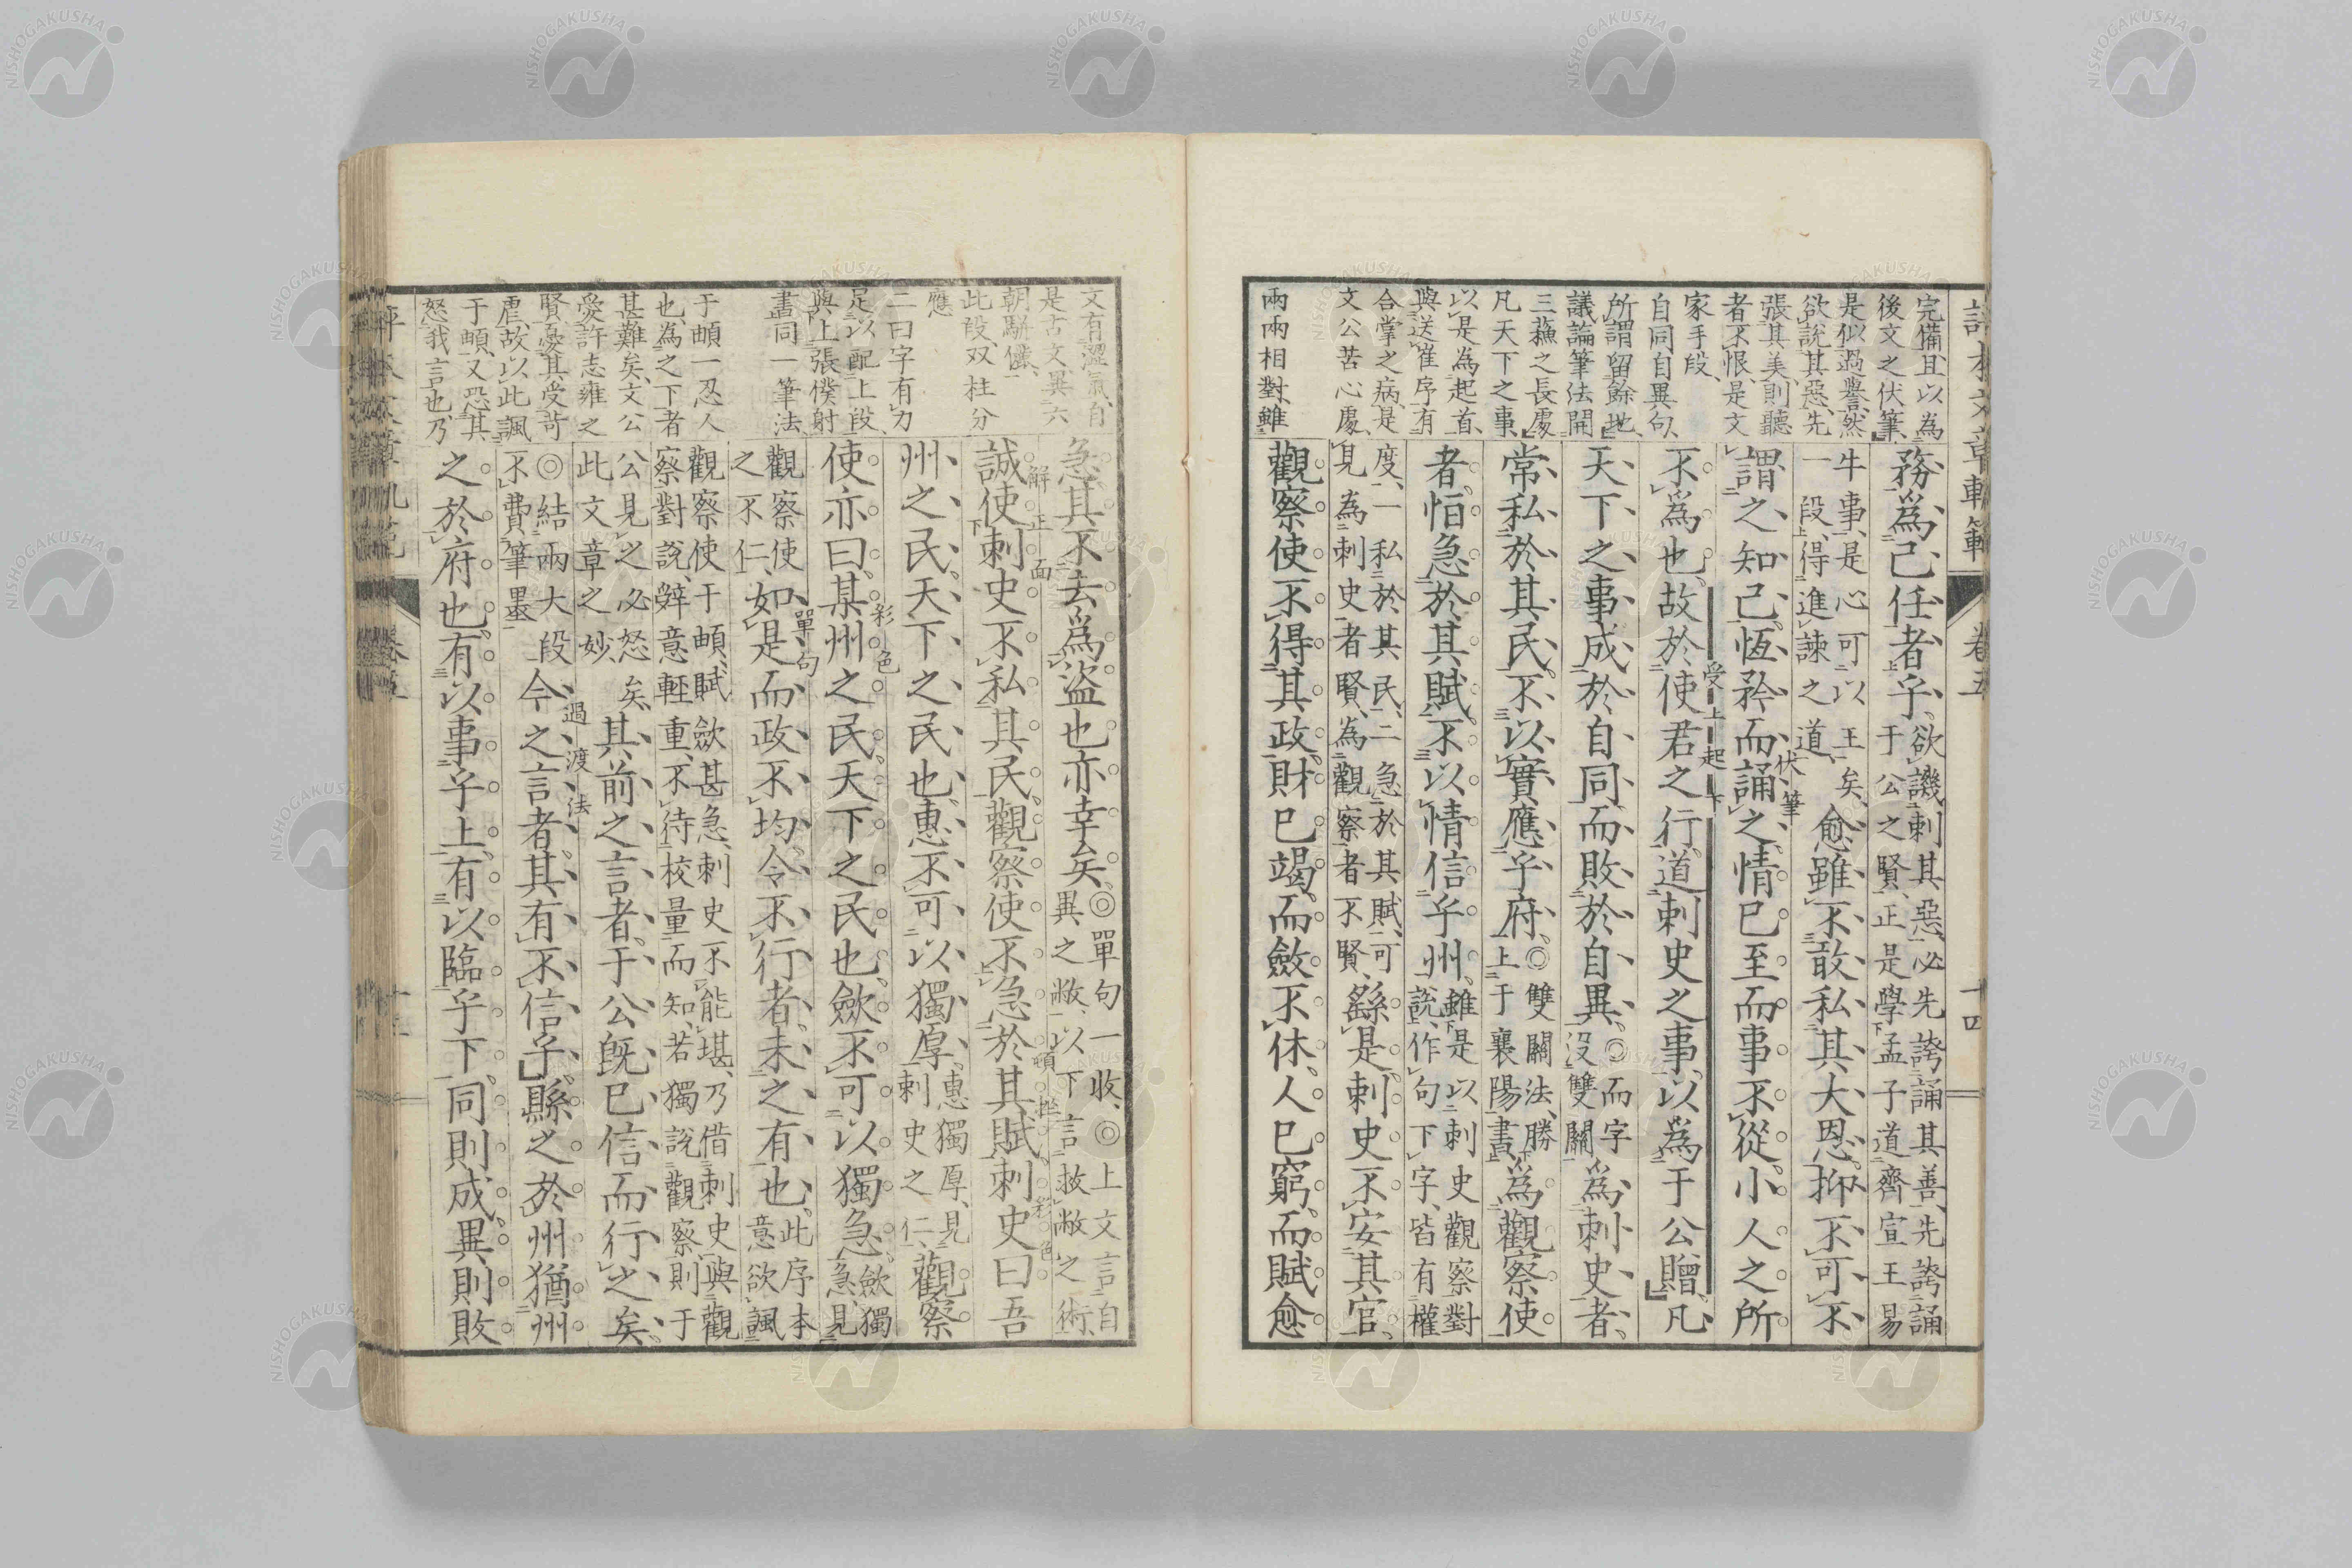 評本文章軌範 卷五 十四
完備且以為
後文之伏筆
是似過譽然
欲說其惡先
張其美則聽
者不恨是文
家手段
自同自異句
所謂留餘地
議論筆法開
三蘓之長處
凡天下之事
以是為起首
與送崔序有
合掌之病是
文公苦心處
兩兩相對雖
務為己任者乎欲譏刺其惡必先誇誦其善先誇誦
于公之賢正是學孟子道齊宣王易
牛事是心可以王矣
一段得進諫之道愈雖不敢私其大恩抑不可不
謂之知己恆矜而誦之情已至而事不從小人之所
伏筆
不為也故於使君之行道刺史之事以為于公贈凡
受上起下
天下之事成於自同而敗於自異◎而字
没雙關為刺史者
常私於其民不以實應乎府◎雙關法勝
上于襄陽書為觀察使
者恒急於其賦不以情信乎州雖是以刺史觀察對
說作句下字皆有權
度一私於其民二急於其賦可
見為刺史者賢為觀察者不賢繇是刺史不安其官
觀察使不得其政財已竭而斂不休人已窮而賦愈
文有澀氣自
是古文異六
朝駢儷
此段双柱分
應
二曰字有力
足以配上段
與上張僕射
書同一筆法
于頔一忍人
也為之下者
甚難矣文公
愛許志雍之
賢憂其受苛
虐故以此諷
于頔又恐其
怒我言也乃
急其不去為盜也亦幸矣◎單句一收◎上文言自
異之敝以下言救敝之術
解正面
誠使刺史不私其民觀察使不急於其賦刺史曰吾
彩色
州之民天下之民也惠不可以獨厚惠獨厚見
刺史之仁觀察
彩色
使亦曰某州之民天下之民也斂不可以獨急斂獨
急見
觀察使
之不仁如是而政不均令不行者未之有也此序本
意欲諷
單句
觀察使于頔賦斂甚急刺史不能堪乃借刺史與觀
察對說辭意輕重不待校量而知若獨說觀察則于
公見之必怒矣
此文章之妙其前之言者于公既已信而行之矣
◎結兩大段
不費筆墨今之言者其有不信乎縣之於州猶州
過渡法
之於府也有以事乎上有以臨乎下同則成異則敗
卷五
NISHOGAKUSHA